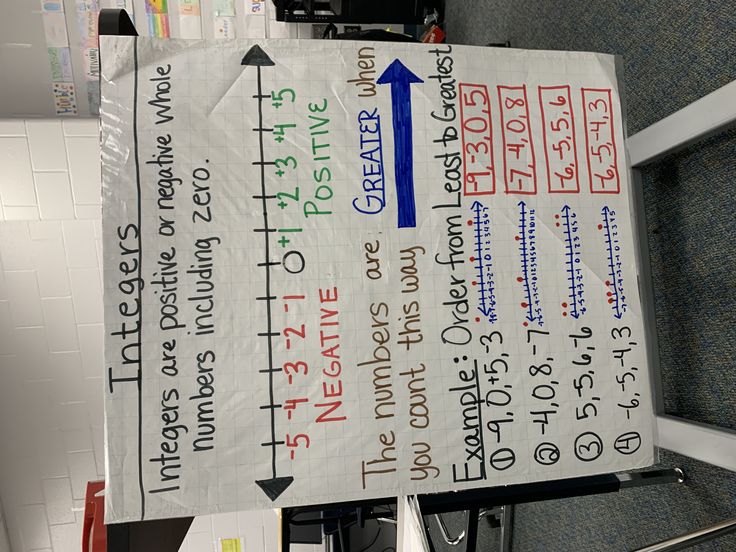 Integers
Integers are positive or negative whole
numbers including zero.
-5 -4 -3 -2 -1 0 +1 +2 +3 +4 +5
NEGATIVE POSITIVE
The numbers are GREATER when
you count this way
Example: Order from Least to Greatest
① -9, 0, +5, -3 -9, -3, 0, 5
② -4, 0, 8, -7 -7, -4, 0, 8
③ 5, -5, 6, -6 -6, -5, 5, 6
④ -6, -5, -4, 3 -6, -5, -4, 3